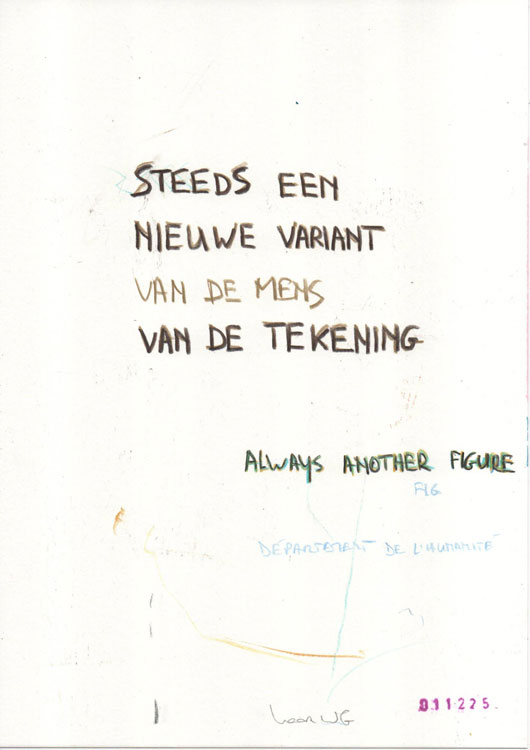 STEEDS EEN
NIEUWE VARIANT
VAN DE MENS
VAN DE TEKENING
ALWAYS ANOTHER FIGURE
FIG
DÉPARTEMENT DE L'HUMANITÉ
011225.